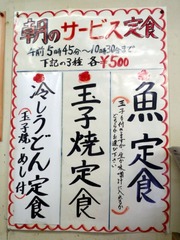 朝のサービス定食
午前5時45分～10時30分まで
下記の3種 各¥500
魚定食
玉子焼定食
冷しうどん定食
(玉子焼・めし付)